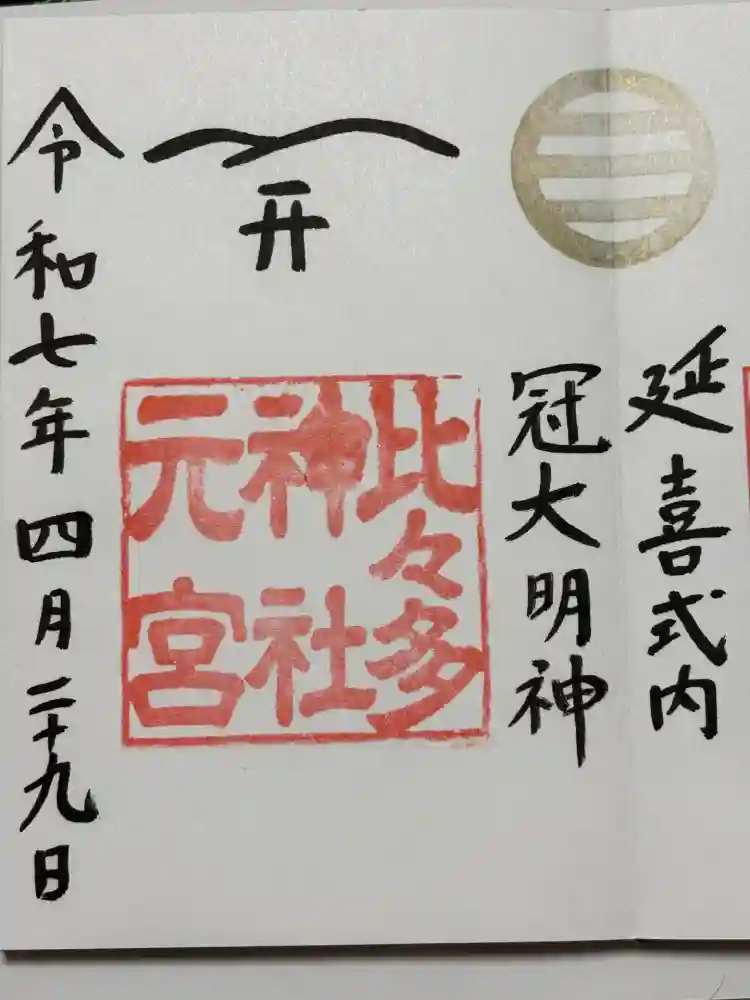 延喜式内
冠大明神
比々多
神社
元宮
令和七年四月二十九日